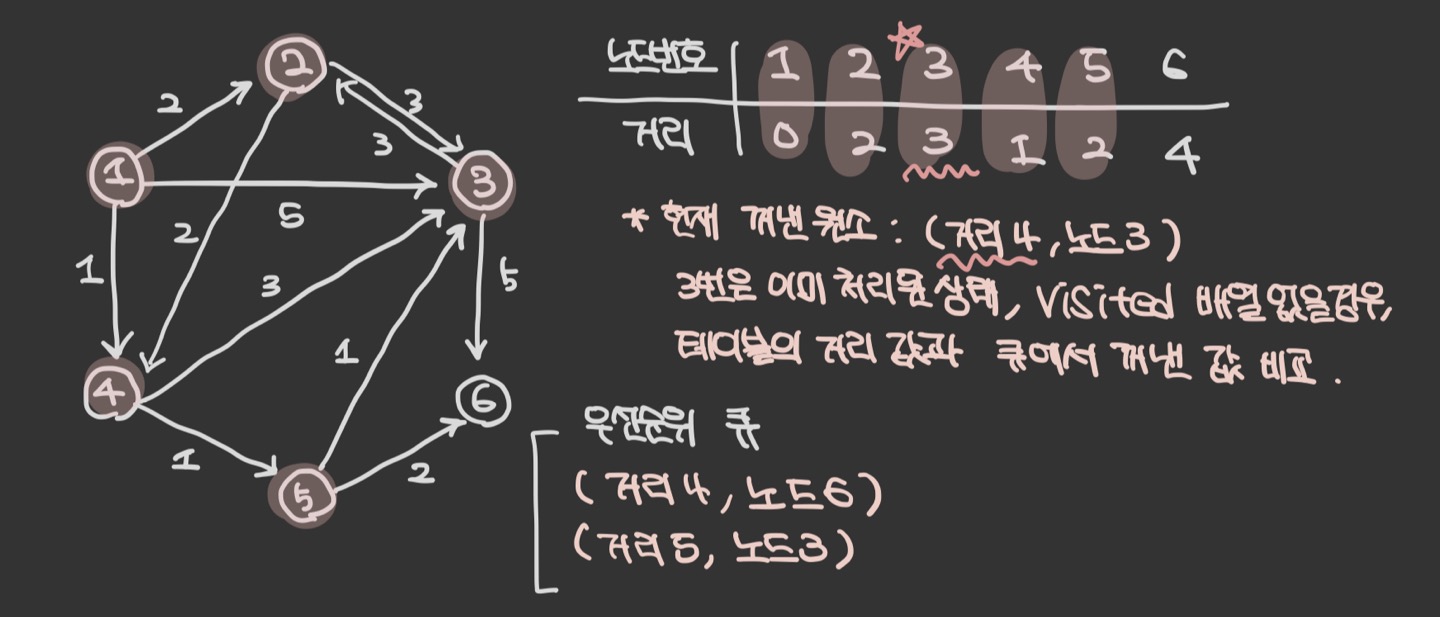 노드번호 1 2 3 4 5 6
거리 0 2 3 1 2 4
* 현재 꺼낸 원소 : (거리 4, 노드 3)
3번은 이미 처리된 상태, visited 배열 없을경우,
테이블의 거리 값과 큐에서 꺼낸 값 비교.
우선순위 큐
(거리 4, 노드 6)
(거리 5, 노드 3)
2
2
3
3
1
3
5
2
1
3
5
1
4
6
1
2
5